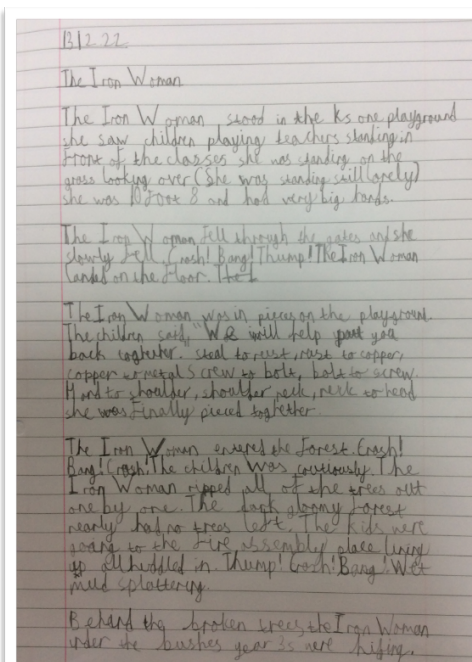 13/2.22
The Iron Woman
The Iron Woman stood in the ks one playground
she saw children playing teachers standing in
front of the classes she was standing on the
grass looking over (She was standing still lonely)
she was 10 foot 8 and had very big hands.
The Iron Woman fell through the gates and she
slowly fell. Crash! Bang! Thump! The Iron Woman
landed on the floor. The I
The Iron Woman was in pieces on the playground.
The children said, "We will help you
back togheter. steal to rust, rust to copper,
copper to metal screw to bolt, bolt to screw.
Hand to shoulder, shoulder neck, neck to head
she was finally pieced toghether.
The Iron Woman entered the forest. Crash!
Bang! Crash! The children was coutiously. The
Iron Woman ripped all of the trees out
one by one. The dark gloomy forest
nearly had no trees left. The kids were
going to the fire assembly place lining
up all huddled in. Thump! Crash! Bang! Wet
mud splattering.
Behind the broken trees the Iron Woman
under the bushes year 3s were hiding.